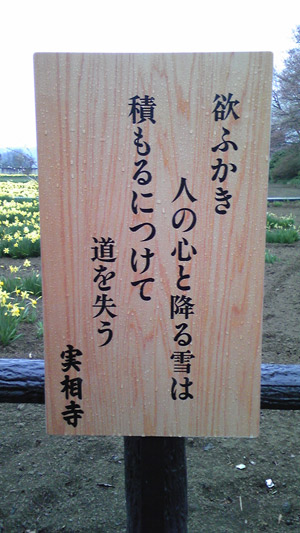 欲ふかき
人の心と降る雪は
積もるにつけて
道を失う
実相寺